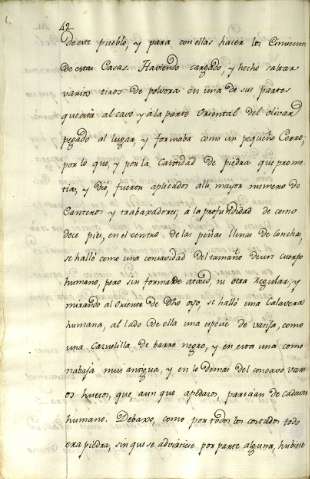 42
de este pueblo, y para con ellas hacer los Cimientos
de estas Casas. Haviendo cargado, y hecho saltar
varios tiros de polvora en una de sus partes
que era al cavo y a la parte oriental del olivar
pegado al lugar, y formaba como un pequeño Cerro,
por lo que, y por la Cantidad de piedra que prome
tia, y dió, fueron aplicados alli mayor numero de
Canteros y trabaxadores; a la profundidad de como
doce pies, en el centro de las peñas llenas de conchas,
se halló como una concavidad del tamaño de un cuerpo
humano, pero sin forma de ataud, ni otra regular, y
mirando al oriente de Dho oyo, se halló una Calavera
humana, al lado de ella una especie de vasija, como
una Cazuelilla, de barro negro, y en esta una como
nabaja mui antigua, y en lo demas del concavo varios
os huesos, que, aun que apedazos, parecian de cadaver
humano. Debaxo, como por todos los costados todo
era piedra, sin que se advirtiese por parte alguna, hubiese